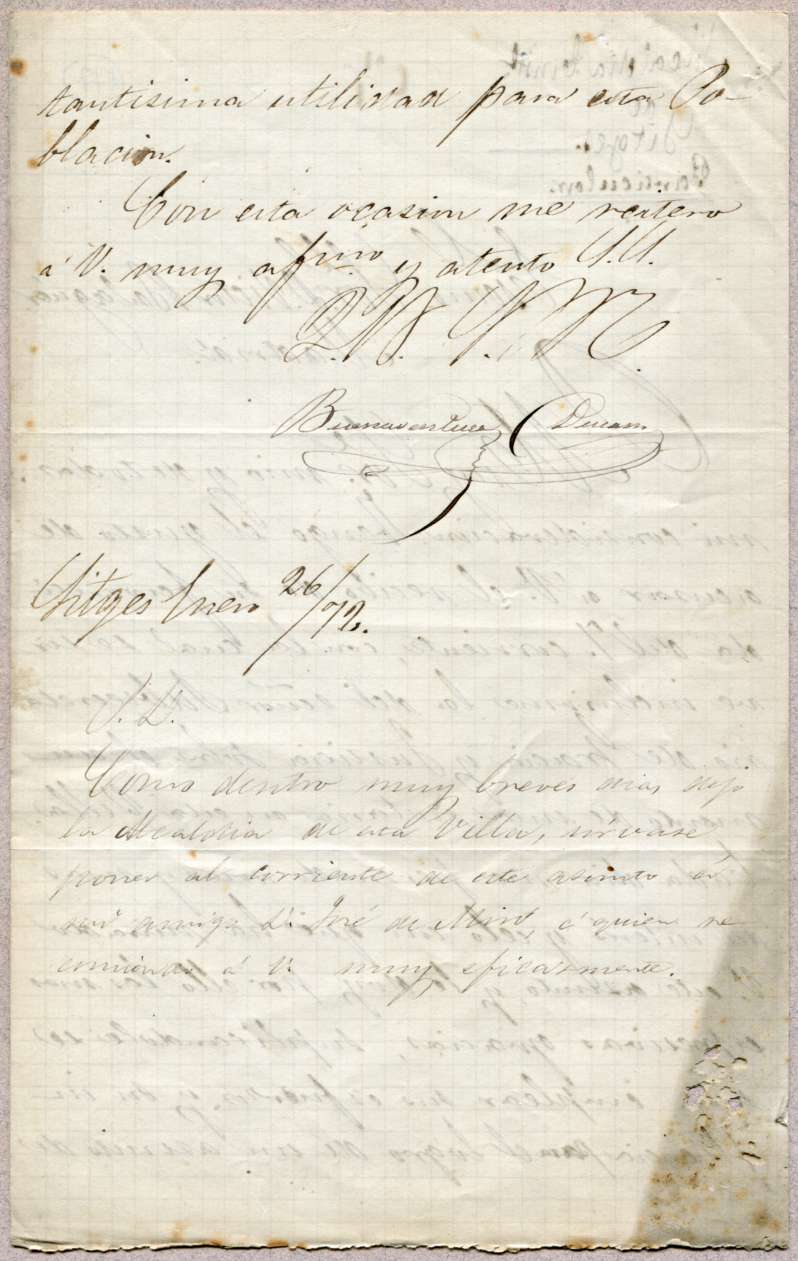 tantisima utilidad para esta Po-
blacion.
Con esta ocasion me reitero
á V. muy afmo y atento S.S.
Q.B. S.M.
Buenaventura Duran
Sitges Enero 26/72.
P. D.
Como dentro muy breves dias dejo
la Alcaldia de esta Villa, sirvase
poner al corriente de este asunto á
mi amigo Dn José de Miró, á quien re
comiendo á V. muy eficazmente.